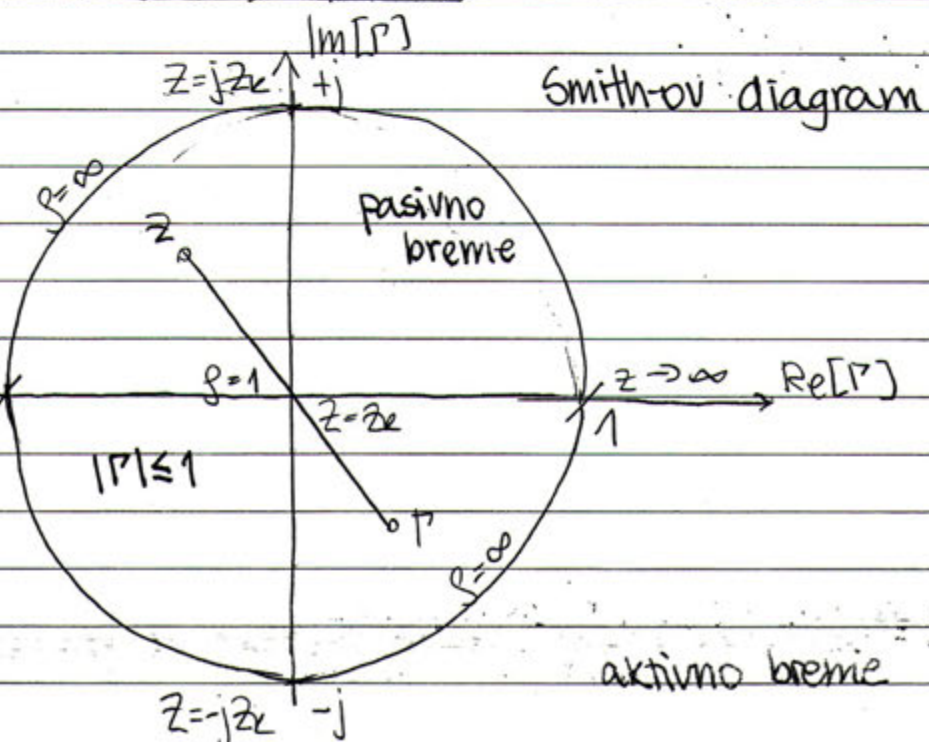 Im[Γ]
Z=jZk +j
Smith-ov diagram
ρ=∞
Z
pasivno
breme
ρ=1
z→∞
Re[Γ]
Z=Zk
1
|Γ|≤1
Γ
ρ=∞
aktivno breme
Z=-jZk -j